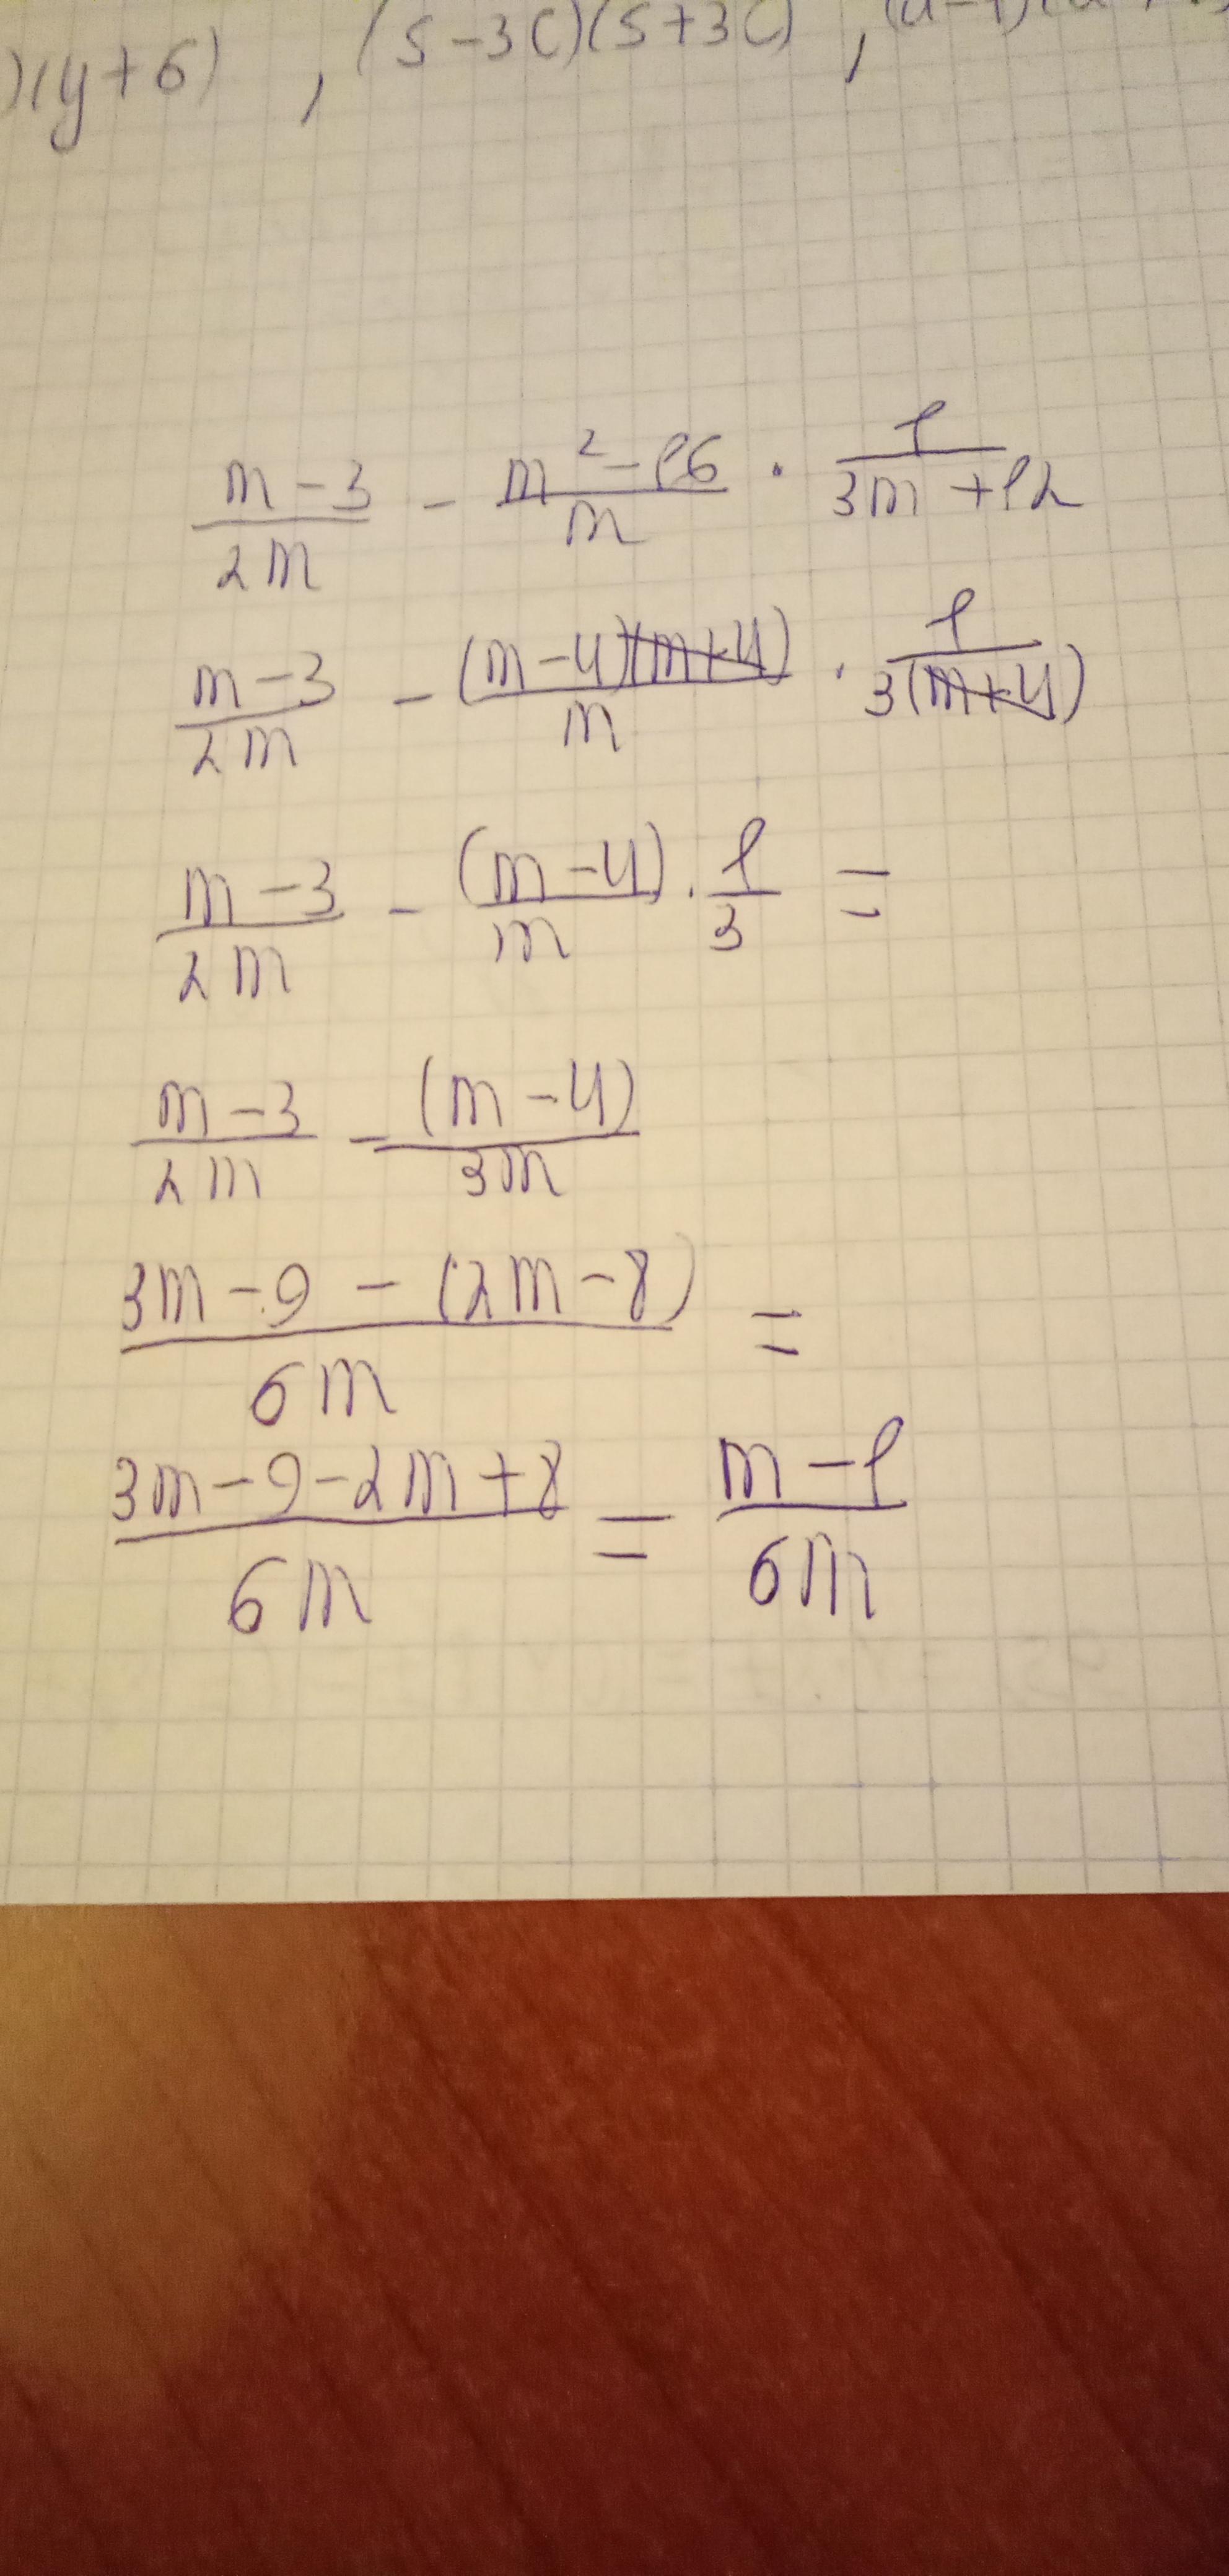 )(y+6) , (5-3c)(5+3c) ,
\frac{m-3}{2m} - \frac{m^2-16}{m} · \frac{1}{3m+12}
\frac{m-3}{2m} - \frac{(m-4)(m+4)}{m} · \frac{1}{3(m+4)}
\frac{m-3}{2m} - \frac{(m-4)}{m} · \frac{1}{3} =
\frac{m-3}{2m} - \frac{(m-4)}{3m}
\frac{3m-9-(2m-8)}{6m} =
\frac{3m-9-2m+8}{6m} = \frac{m-1}{6m}